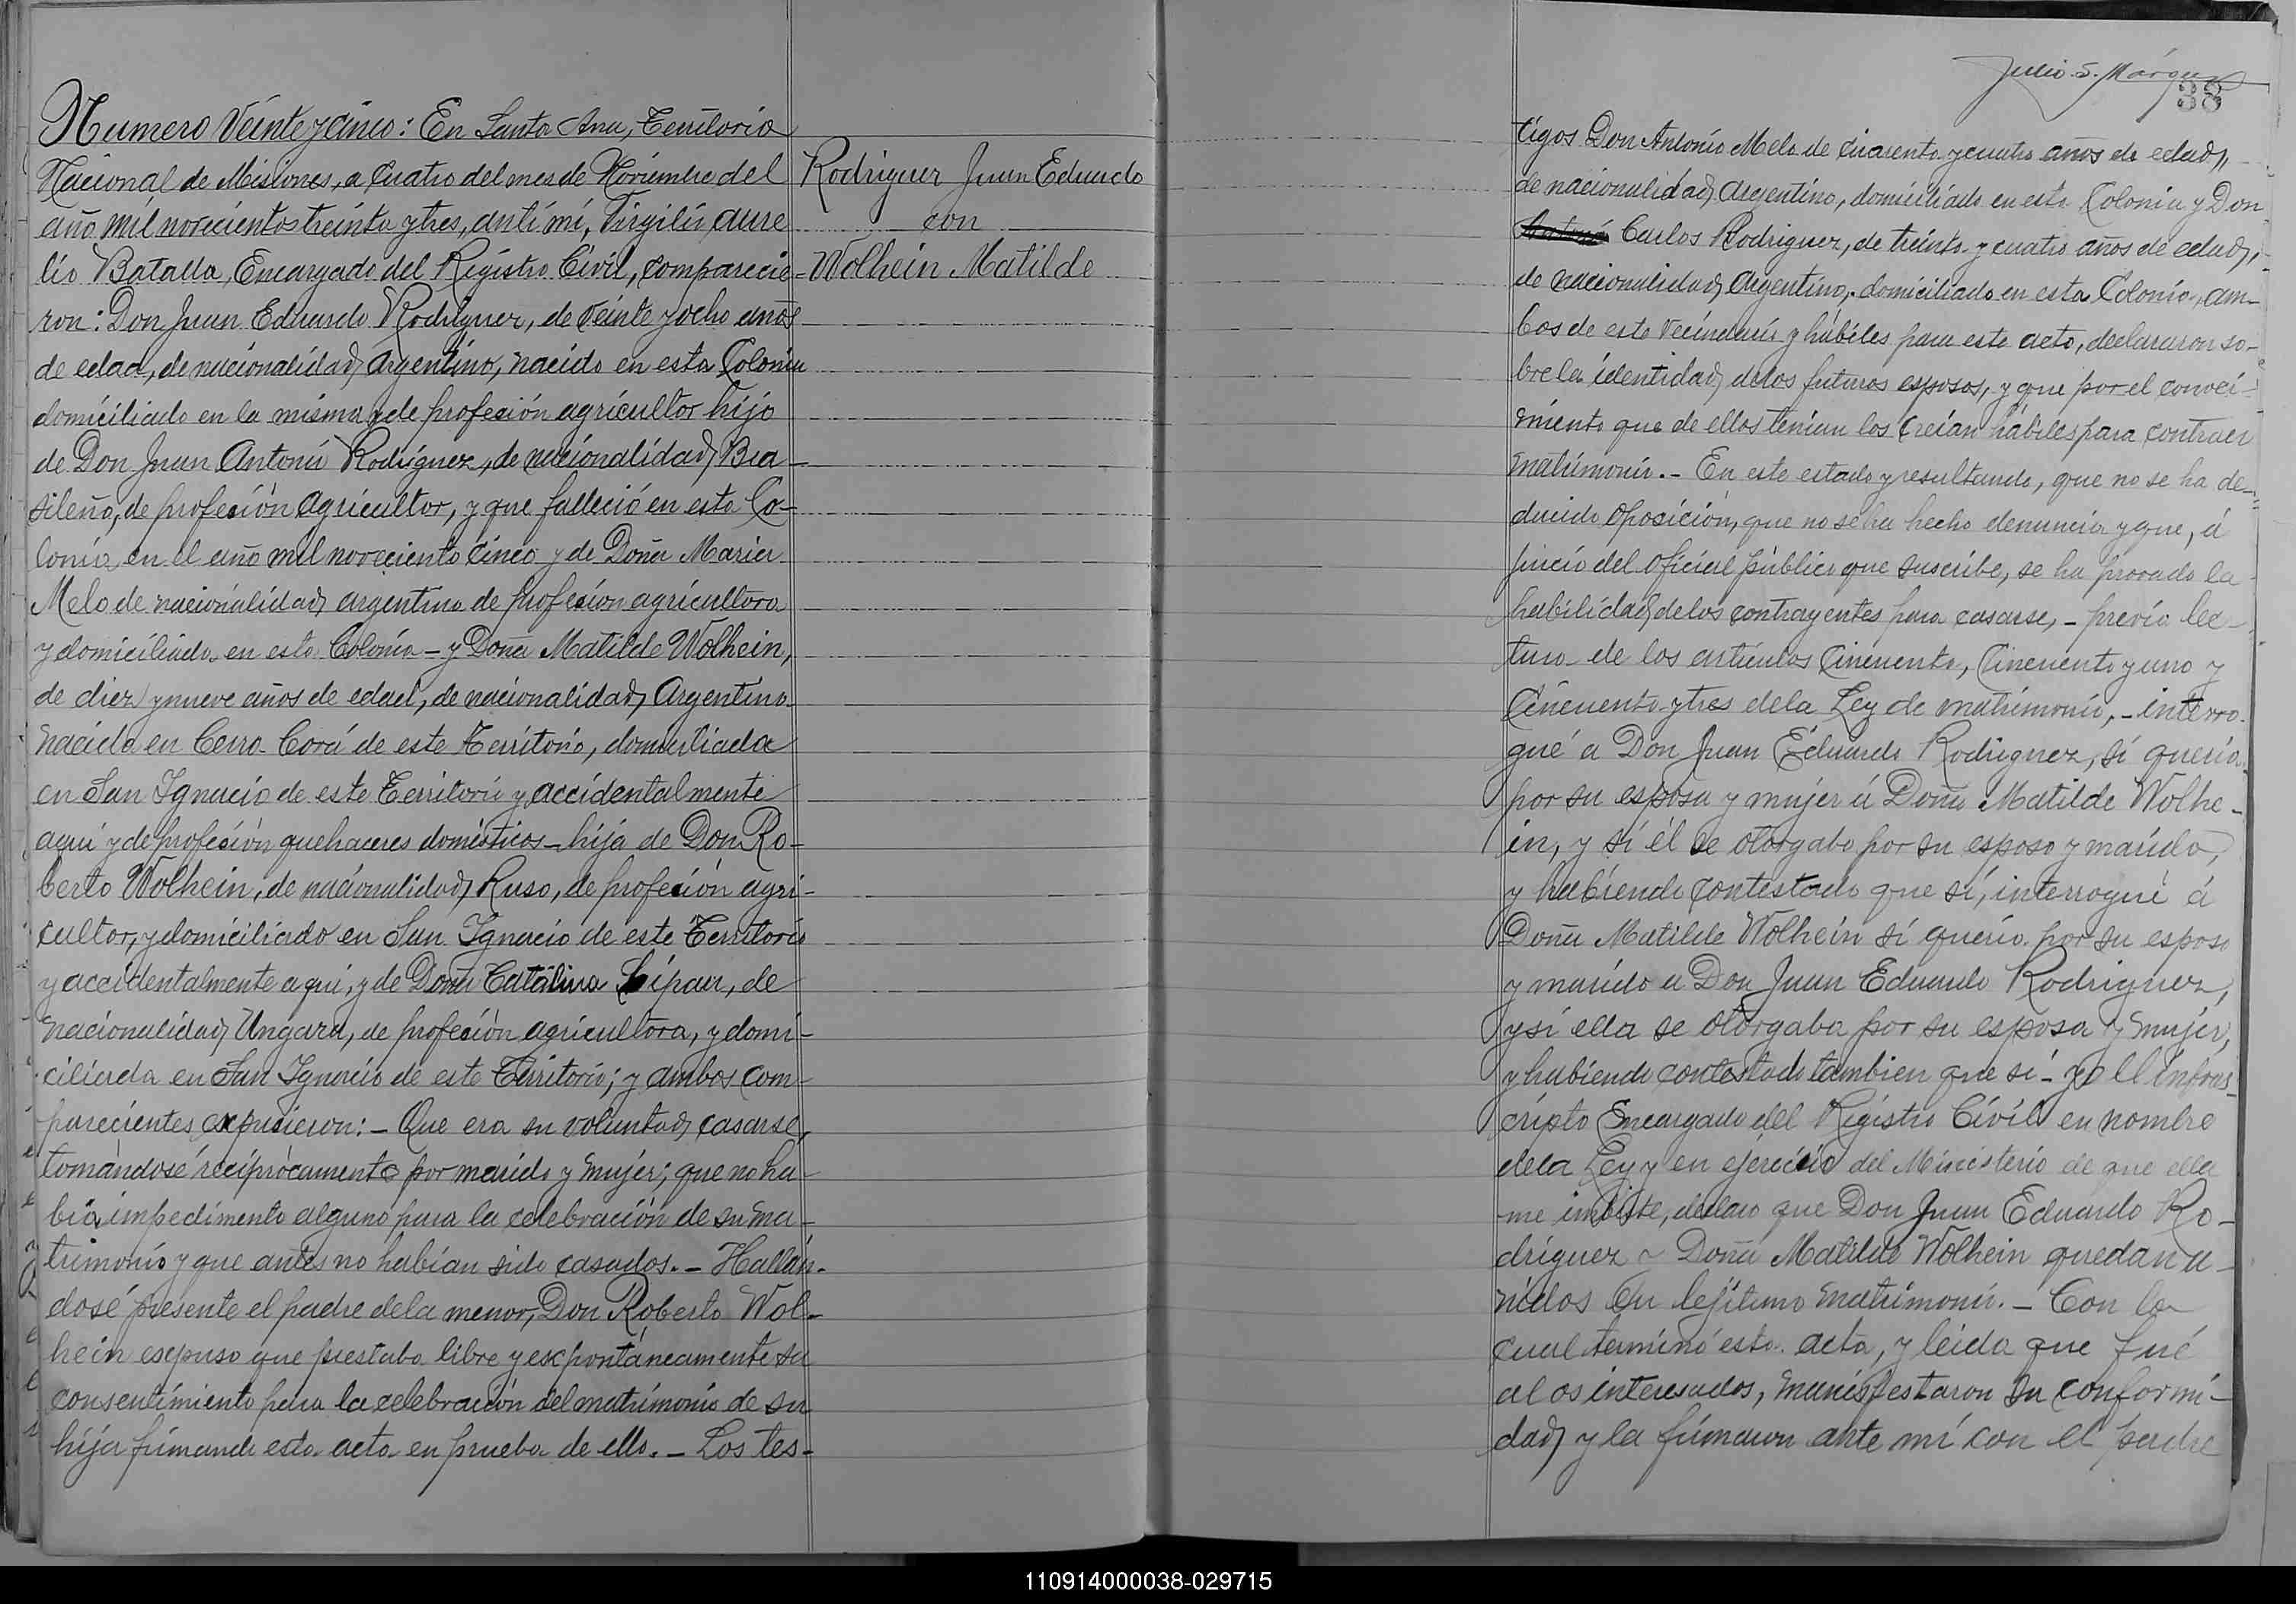 Numero Veinte y cinco: En Santa Ana, Territorio
Nacional de Misiones, a cuatro del mes de Noviembre del
año mil novecientos treinta y tres, anti mí, Virgilio Aure
lio Batalla, Encargado del Registro Civil, comparecie-
ron: Don Juan Eduardo Rodriguez, de veinte y ocho años
de edad, de nacionalidad Argentino, nacido en esta Colonia
domiciliado en la misma y de profesión agricultor hijo
de Don Juan Antonio Rodriguez, de nacionalidad Bra-
sileño, de profesión agricultor, y que falleció en esta Co-
lonia, en el año mil noveciento cinco y de Doña Maria
Melo de nacionalidad argentina de profesion agricultora
y domiciliada en esta Colonia - y Doña Matilde Wolhein,
de diez y nueve años de edad, de nacionalidad Argentina
nacida en Cerro Corá de este Territorio, domiciliada
en San Ignacio de este Territorio y accidentalmente
aqui y de profesión quehaceres domésticos - hija de Don Ro-
berto Wolhein, de nacionalidad Ruso, de profesión agri-
cultor, y domiciliado en San Ignacio de este Territorio
y accidentalmente aqui, y de Doña Catalina, de
nacionalidad Ungara, de profesión agricultora, y domi-
ciliada en San Ignacio de este Territorio; y ambos com-
parecientes expusieron: - Que era su voluntad casarse,
tomándose recíprocamente por marido y mujer; que no ha-
bía impedimento alguno para la celebración de su ma-
trimonio y que antes no habían sido casados. - Hallán-
dose presente el padre de la menor, Don Roberto Wol-
hein esepuso que prestaba libre y escpontáneamente su
consentimiento para la celebración del matrimonio de su
hija firmando esta acta en prueba de ello. - Los tes-
Rodriguez Juan Eduardo
con
Wolhein Matilde
Julio S. Márquez
38
tigos Don Antonio Melo de cuarenta y cuatro años de edad,
de nacionalidad Argentino, domiciliado en esta Colonia y Don
Carlos Rodriguez, de treinta y cuatro años de edad,
de nacionalidad Argentino, domiciliado en esta Colonia, am-
bos de este vecindario y hábiles para este acto, declararon so-
bre la identidad de los futuros esposos, y que por el conoci-
miento que de ellos tenian los creían hábiles para contraer
matrimonio. - En este estado y resultando, que no se ha de-
ducido oposición, que no se ha hecho denuncia y que, á
juicio del oficial público que suscribe, se ha provado la
habilidad de los contrayentes para casarse, - previa lec-
tura de los articulos Cincuenta, Cincuenta y uno y
Cincuenta y tres de la Ley de matrimonio, - interro-
gué a Don Juan Eduardo Rodriguez, si queria
por su esposa y mujer á Doña Matilde Wolhe-
in, y si él se otorgaba por su esposo y marido,
y habiendo contestado que sí, interrogué á
Doña Matilde Wolhein si queria por su esposo
y marido a Don Juan Eduardo Rodriguez,
y si ella se otorgaba por su esposa y mujer,
y habiendo contestado tambien que si - yo el infras-
cripto Encargado del Registro Civil en nombre
de la Ley y en ejercicio del Ministerio de que ella
me inviste, declaro que Don Juan Eduardo Ro-
driguez y Doña Matilde Wolhein quedan u-
nidos en lejitimo matrimonio. - Con lo
cual terminó esta acta, y leida que fué
a los interesados, manifestaron su conformi-
dad y la firmaron ante mí con el padre
110914000038-029715